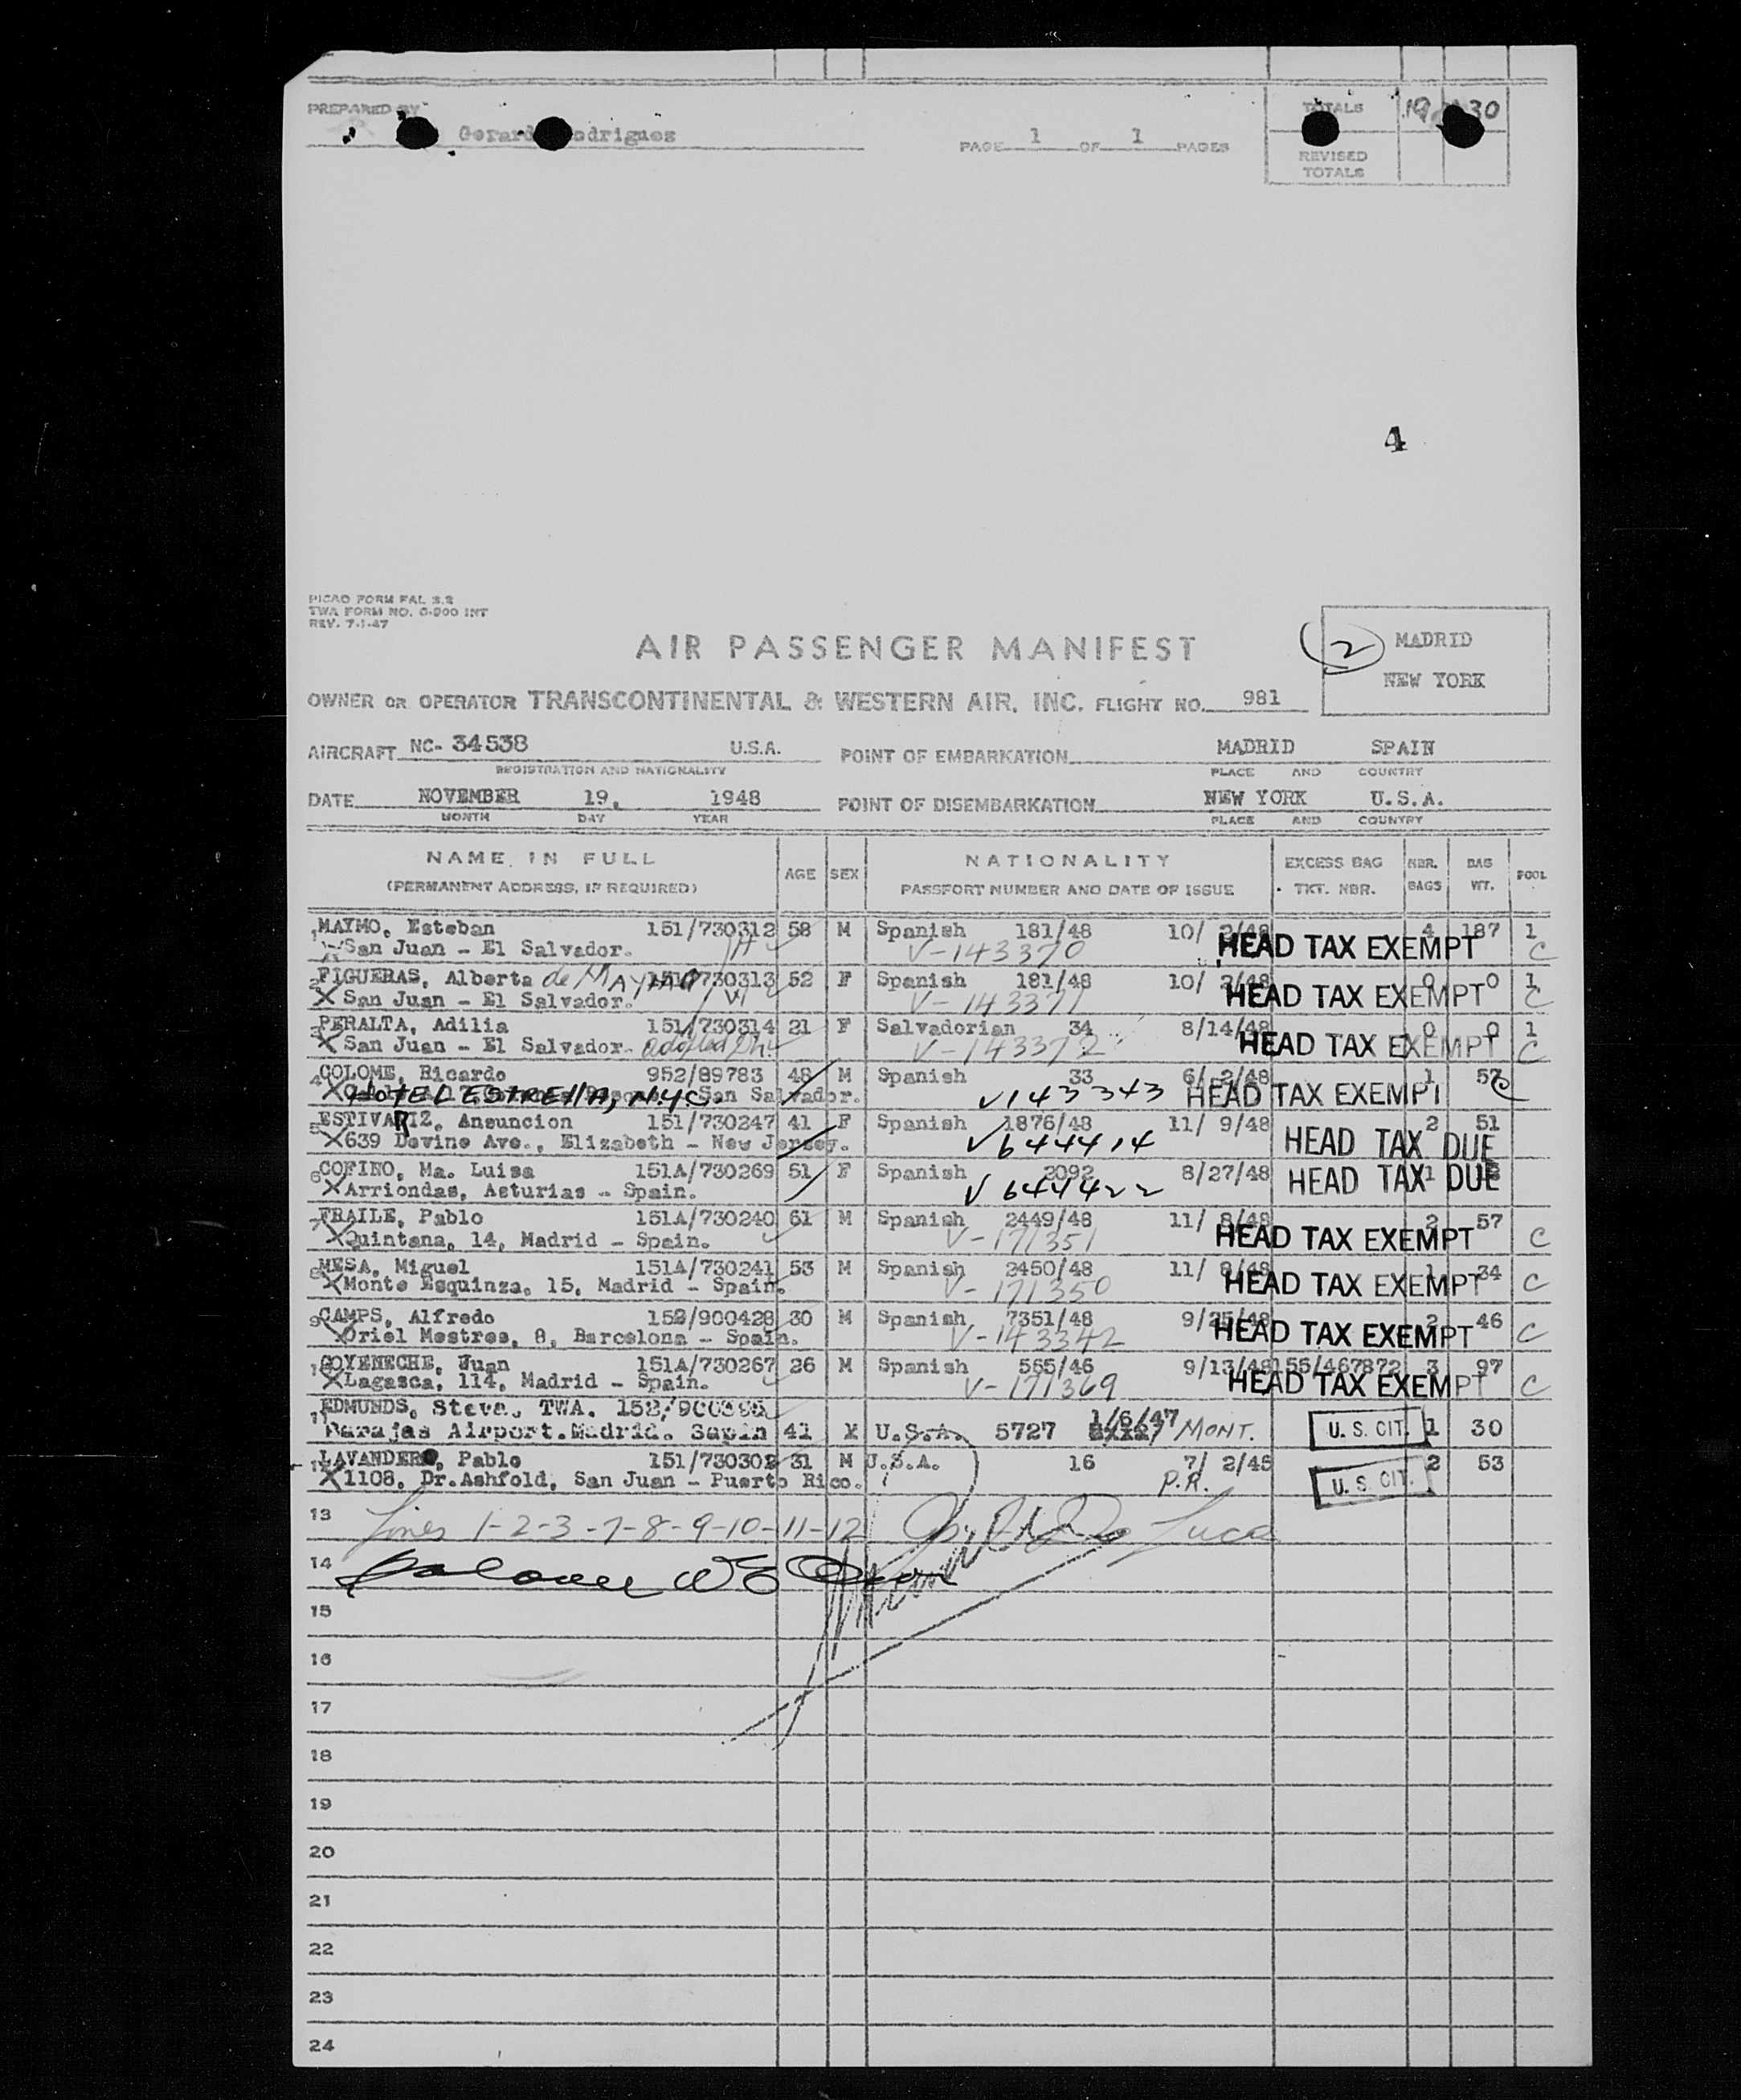 PREPARED BY
Gerard odrigues
PAGE 1 OF 1 PAGES
TOTALS 19 30
REVISED TOTALS
4
PICAO FORM FAL 2.2
TWA FORM NO. G-900 INT
REV. 7-1-47
AIR PASSENGER MANIFEST
2 MADRID
NEW YORK
OWNER OR OPERATOR TRANSCONTINENTAL & WESTERN AIR, INC. FLIGHT NO. 981
AIRCRAFT NC- 34538 U.S.A. POINT OF EMBARKATION MADRID SPAIN
REGISTRATION AND NATIONALITY PLACE AND COUNTRY
DATE NOVEMBER 19, 1948 POINT OF DISEMBARKATION NEW YORK U.S.A.
MONTH DAY YEAR PLACE AND COUNTRY
NAME IN FULL AGE SEX NATIONALITY EXCESS BAG NBR. BAG POOL
(PERMANENT ADDRESS, IF REQUIRED) PASSPORT NUMBER AND DATE OF ISSUE TKT. NBR. BAGS WT.
1 MAYMO, Esteban 151/730312 58 M Spanish 181/48 10/ 2/48 4 187 1
X San Juan - El Salvador. V-143370 HEAD TAX EXEMPT C
2 FIGUERAS, Alberta de MAYMO 151/730313 52 F Spanish 181/48 10/ 2/48 0 0 1
X San Juan - El Salvador. V-143371 HEAD TAX EXEMPT C
3 PERALTA, Adilia 151/730314 21 F Salvadorian 34 8/14/48 0 0 1
X San Juan - El Salvador. adopted Dh. V-143372 HEAD TAX EXEMPT C
4 COLOME, Ricardo 952/89783 48 M Spanish 33 6/ 2/48 1 57
X HOTEL ESTRELLA, N.Y.C. San Salvador. V143343 HEAD TAX EXEMPT C
5 ESTIVARIZ, Ansuncion 151/730247 41 F Spanish 1876/48 11/ 9/48 2 51
X 639 Devine Ave., Elizabeth - New Jersey. V644414 HEAD TAX DUE
6 COFINO, Ma. Luisa 151A/730269 51 F Spanish 2092 8/27/48 1
X Arriondas, Asturias - Spain. V644422 HEAD TAX DUE
7 FRAILE, Pablo 151A/730240 61 M Spanish 2449/48 11/ 8/48 2 57
X Quintana, 14, Madrid - Spain. V-171351 HEAD TAX EXEMPT C
8 MESA, Miguel 151A/730241 53 M Spanish 2450/48 11/ 8/48 1 34
X Monte Esquinza, 15, Madrid - Spain. V-171350 HEAD TAX EXEMPT C
9 CAMPS, Alfredo 152/900428 30 M Spanish 7351/48 9/25/48 2 46
X Oriel Mestres, 8, Barcelona - Spain. V-143342 HEAD TAX EXEMPT C
10 GOYENECHE, Juan 151A/730267 26 M Spanish 565/46 9/13/48 155/467872 3 97
X Lagasca, 114, Madrid - Spain. V-171369 HEAD TAX EXEMPT C
11 EDMUNDS, Steve, TWA. 152/900395
Barajas Airport.Madrid. Sapin 41 M U.S.A. 5727 1/6/47 MONT. U. S. CIT. 1 30
12 LAVANDERO, Pablo 151/730302 31 M U.S.A. 16 7/ 2/48 2 53
X 1108, Dr.Ashfold, San Juan - Puerto Rico. P.R. U. S. CIT.
13 Lines 1-2-3-7-8-9-10-11-12 Luca
14
15
16
17
18
19
20
21
22
23
24